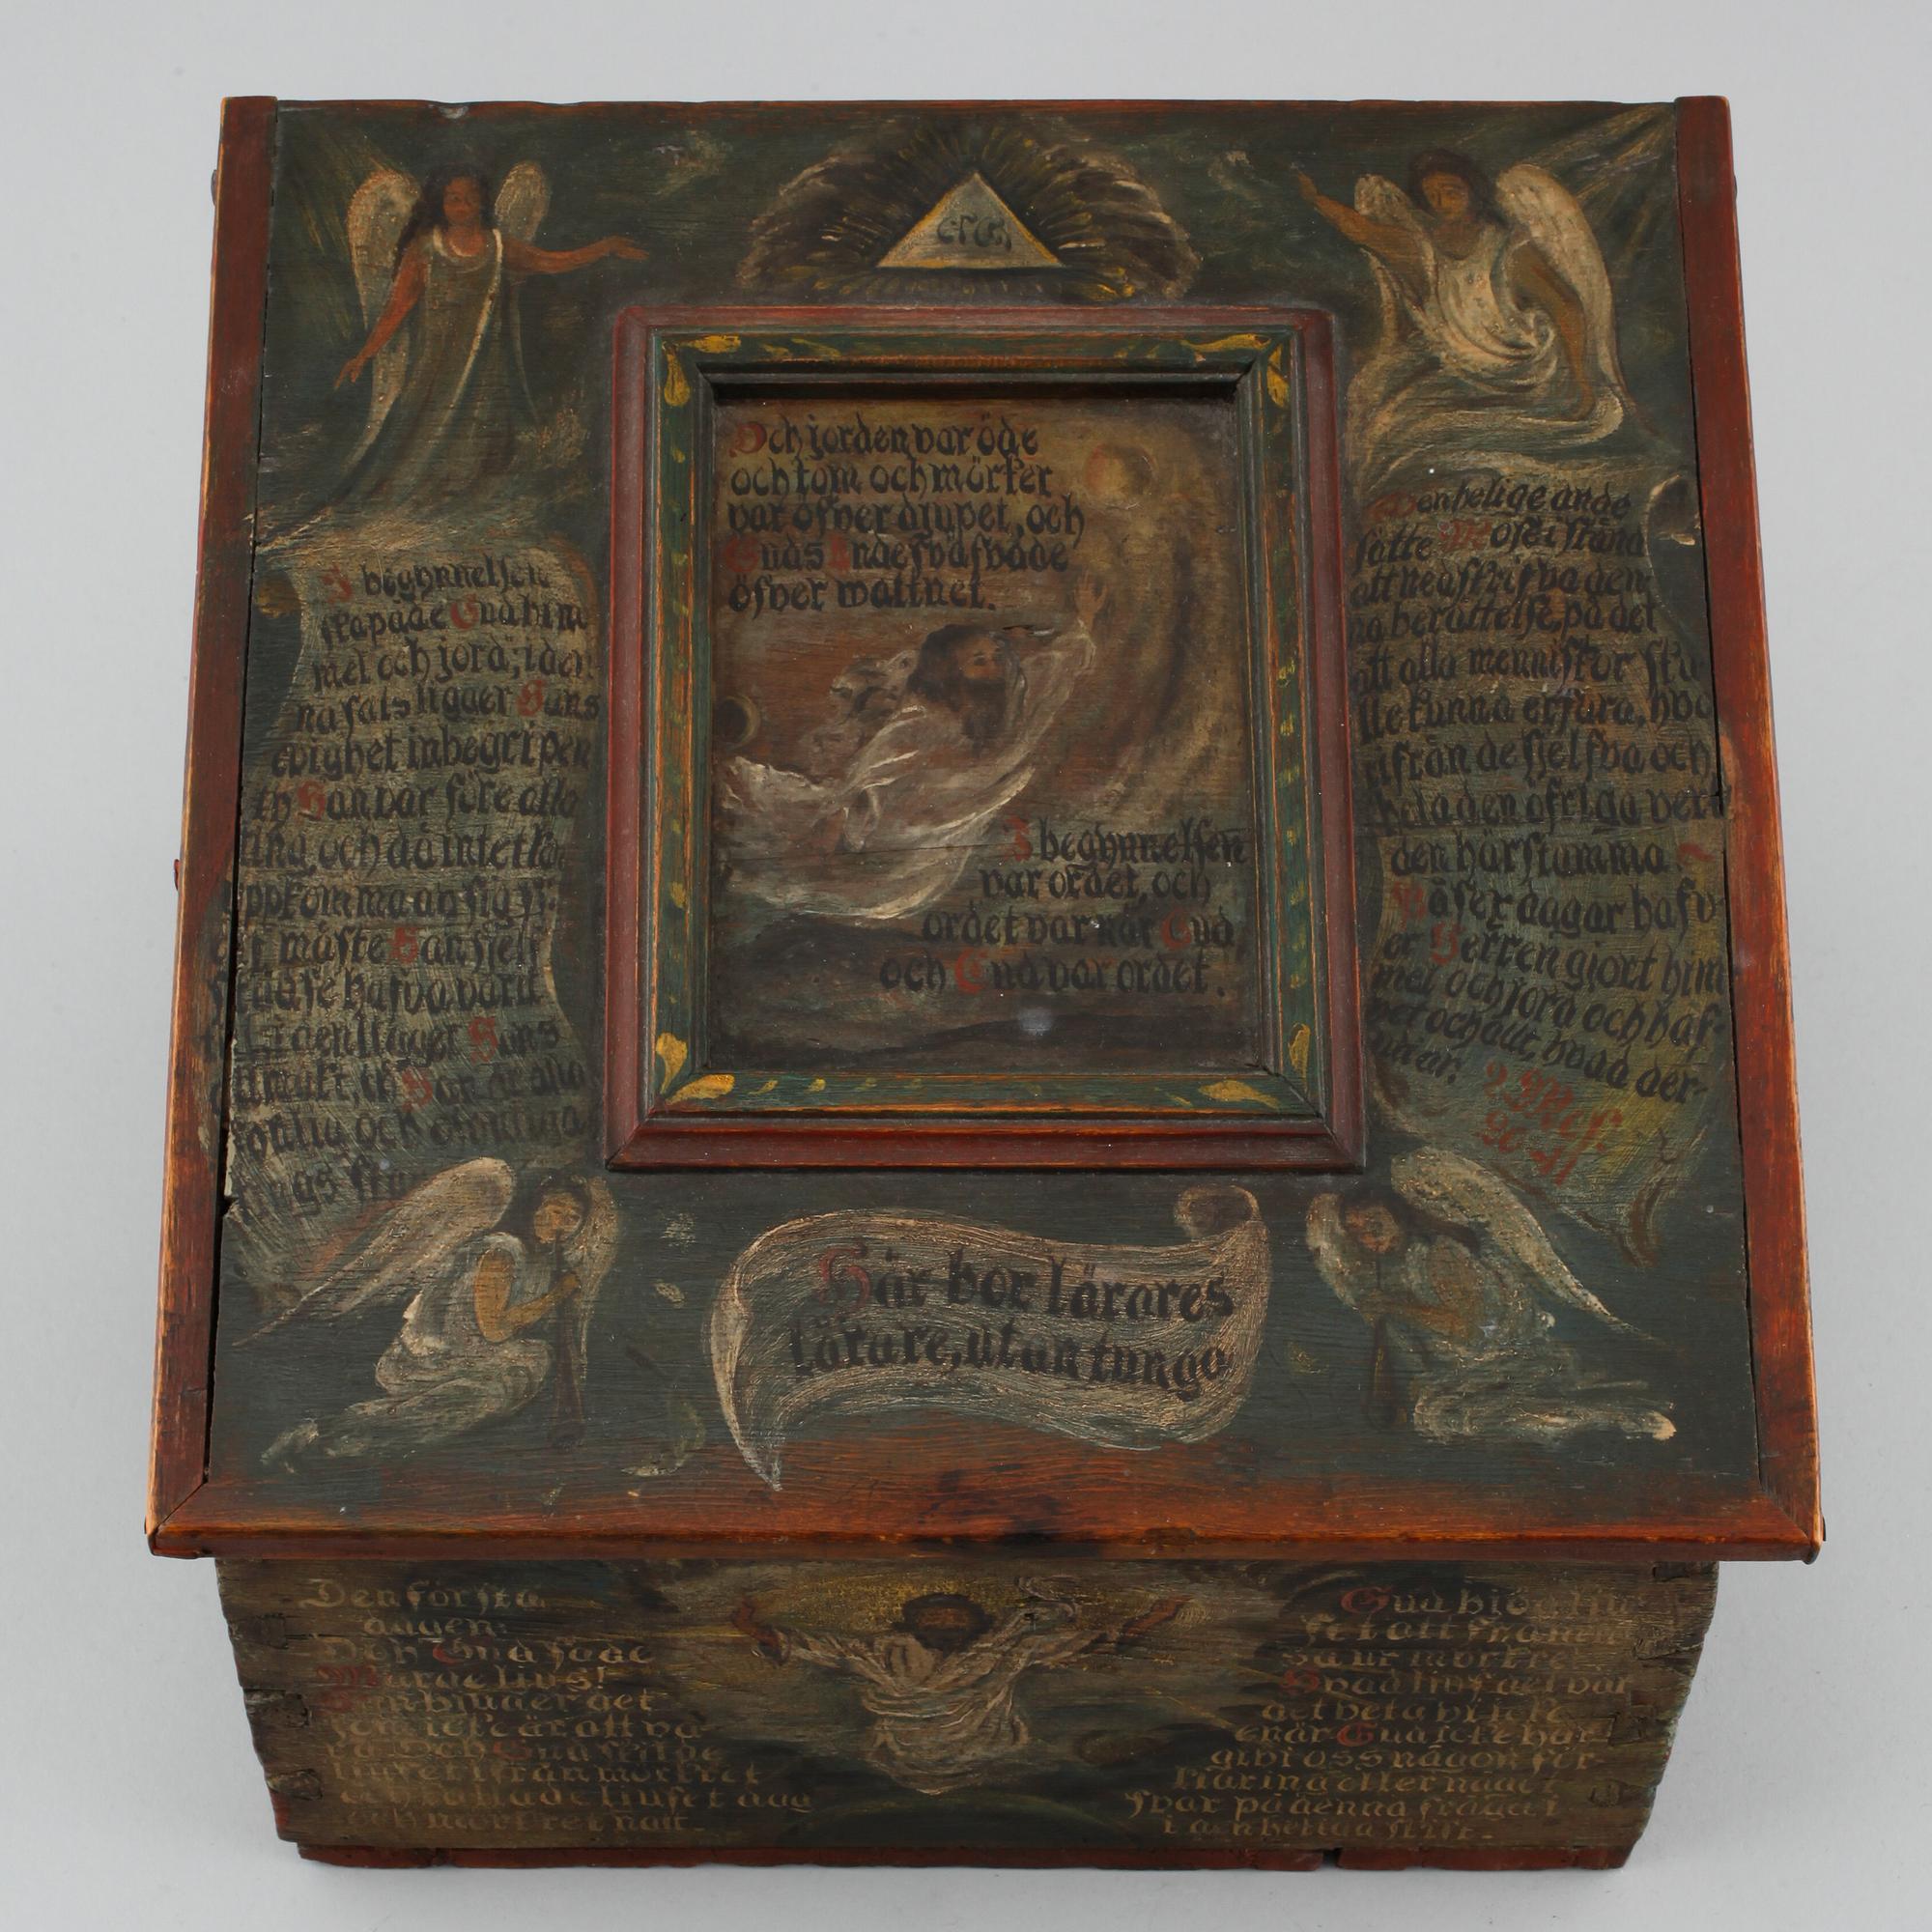 Och jorden var öde
och tom och mörker
var öfver djupet, och
Guds Ande sväfvade
öfver wattnet.
I begynnelsen
var ordet, och
ordet var när Gud,
och Gud var ordet.
I begynnelsen
skapade Gud him
mel och jord; i den
na sats ligger Hans
evighet inbegripen
ty Han var före alla
ting, och då intet
uppkomma av sig
måste Han sjelf
hafva varit
den ligger Hans
allmakt, ty Han är alla
synlig och osynliga
tings
Den helige ande
satte Mose i stånd
att nedskrifva den
na berättelse, på det
att alla menniskor sku
lle kunna erfara, hva
rifrån de sjelfva och
hela den öfriga verl
den härstamma.
På sex dagar hafv
er Herren gjort him
mel och jord och haf-
vet och allt, hvad der-
uti är. 2 Mos:
20-11
Här bor lärares
lärare, utan tunga
Den första
dagen:
Och Gud sade
Warde ljus!
Han bjuder det
som icke är att va-
ra. Och Gud skilde
ljuset ifrån mörkret
och kallade ljuset dag
och mörkret natt.
Gud bjöd lju-
set att framm
ga ur mörkre
Hvad ljus det var
det veta vi icke
enär Gud icke har
givi oss någon för-
klaring eller något
svar på denna fråga i
i den heliga skift.